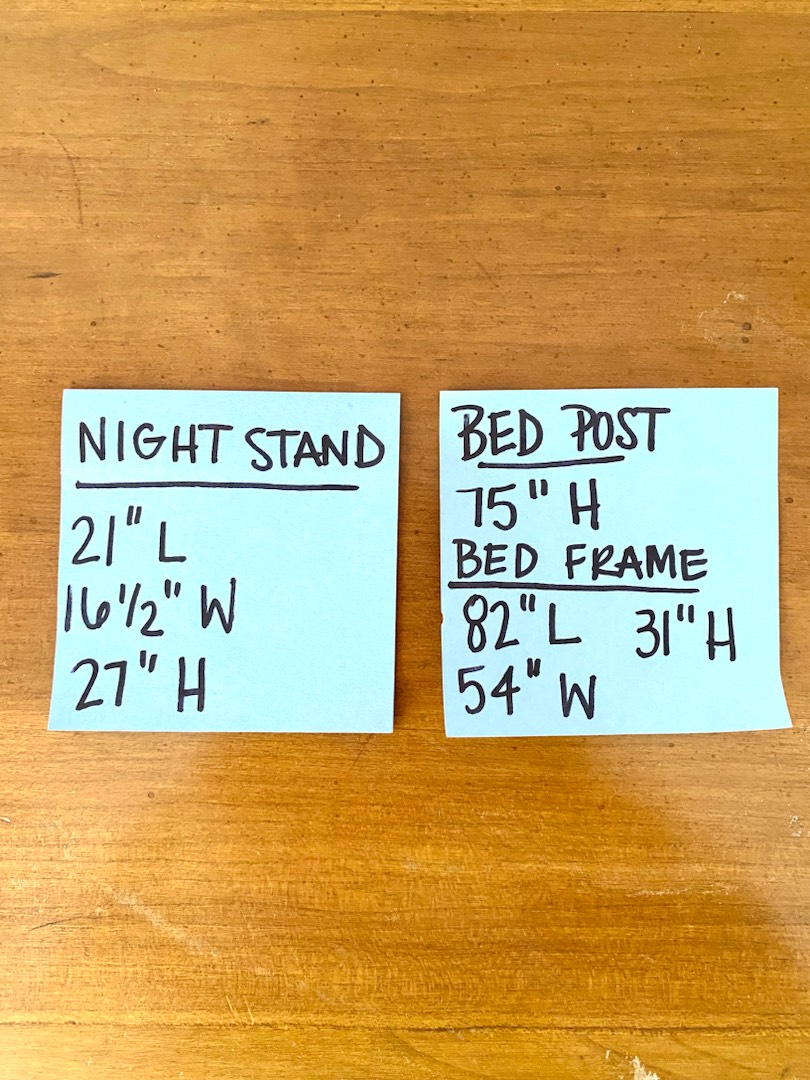 NIGHT STAND
21" L
16 1/2" W
27" H
BED POST
75" H
BED FRAME
82" L 31" H
54" W